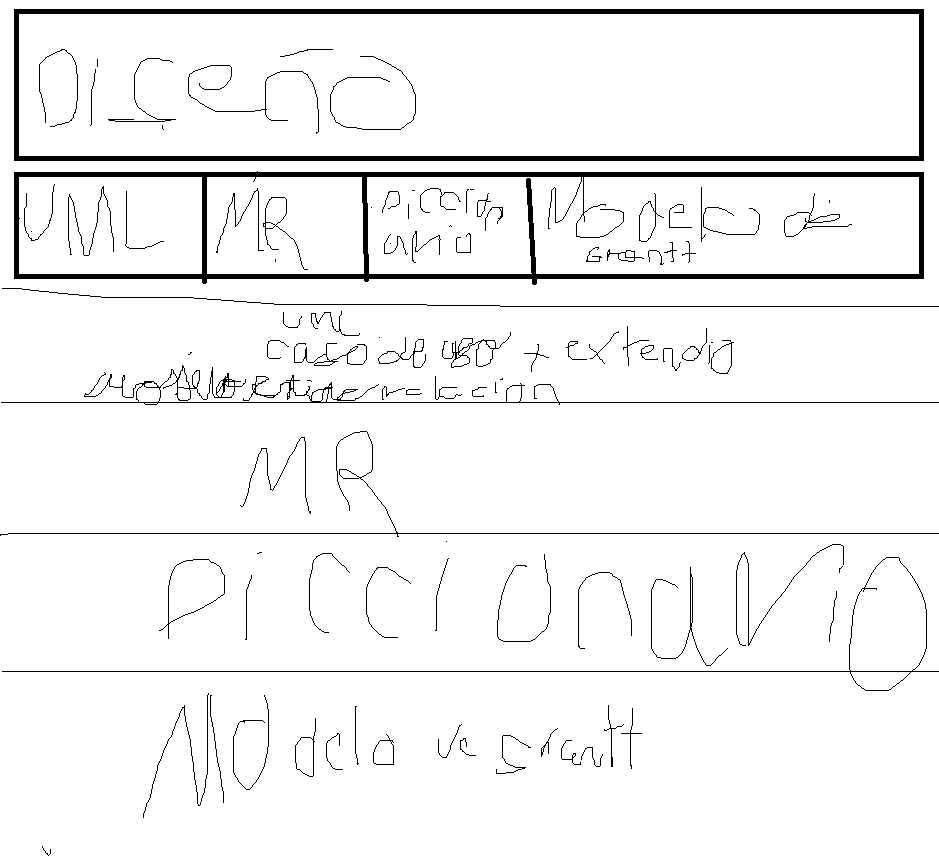 Diseño
UML MR Diccionario Modelo de Grantt
UML
caso de uso + extendio
Modelo entidad relacion
MR
Diccionario
Modelo de Grantt